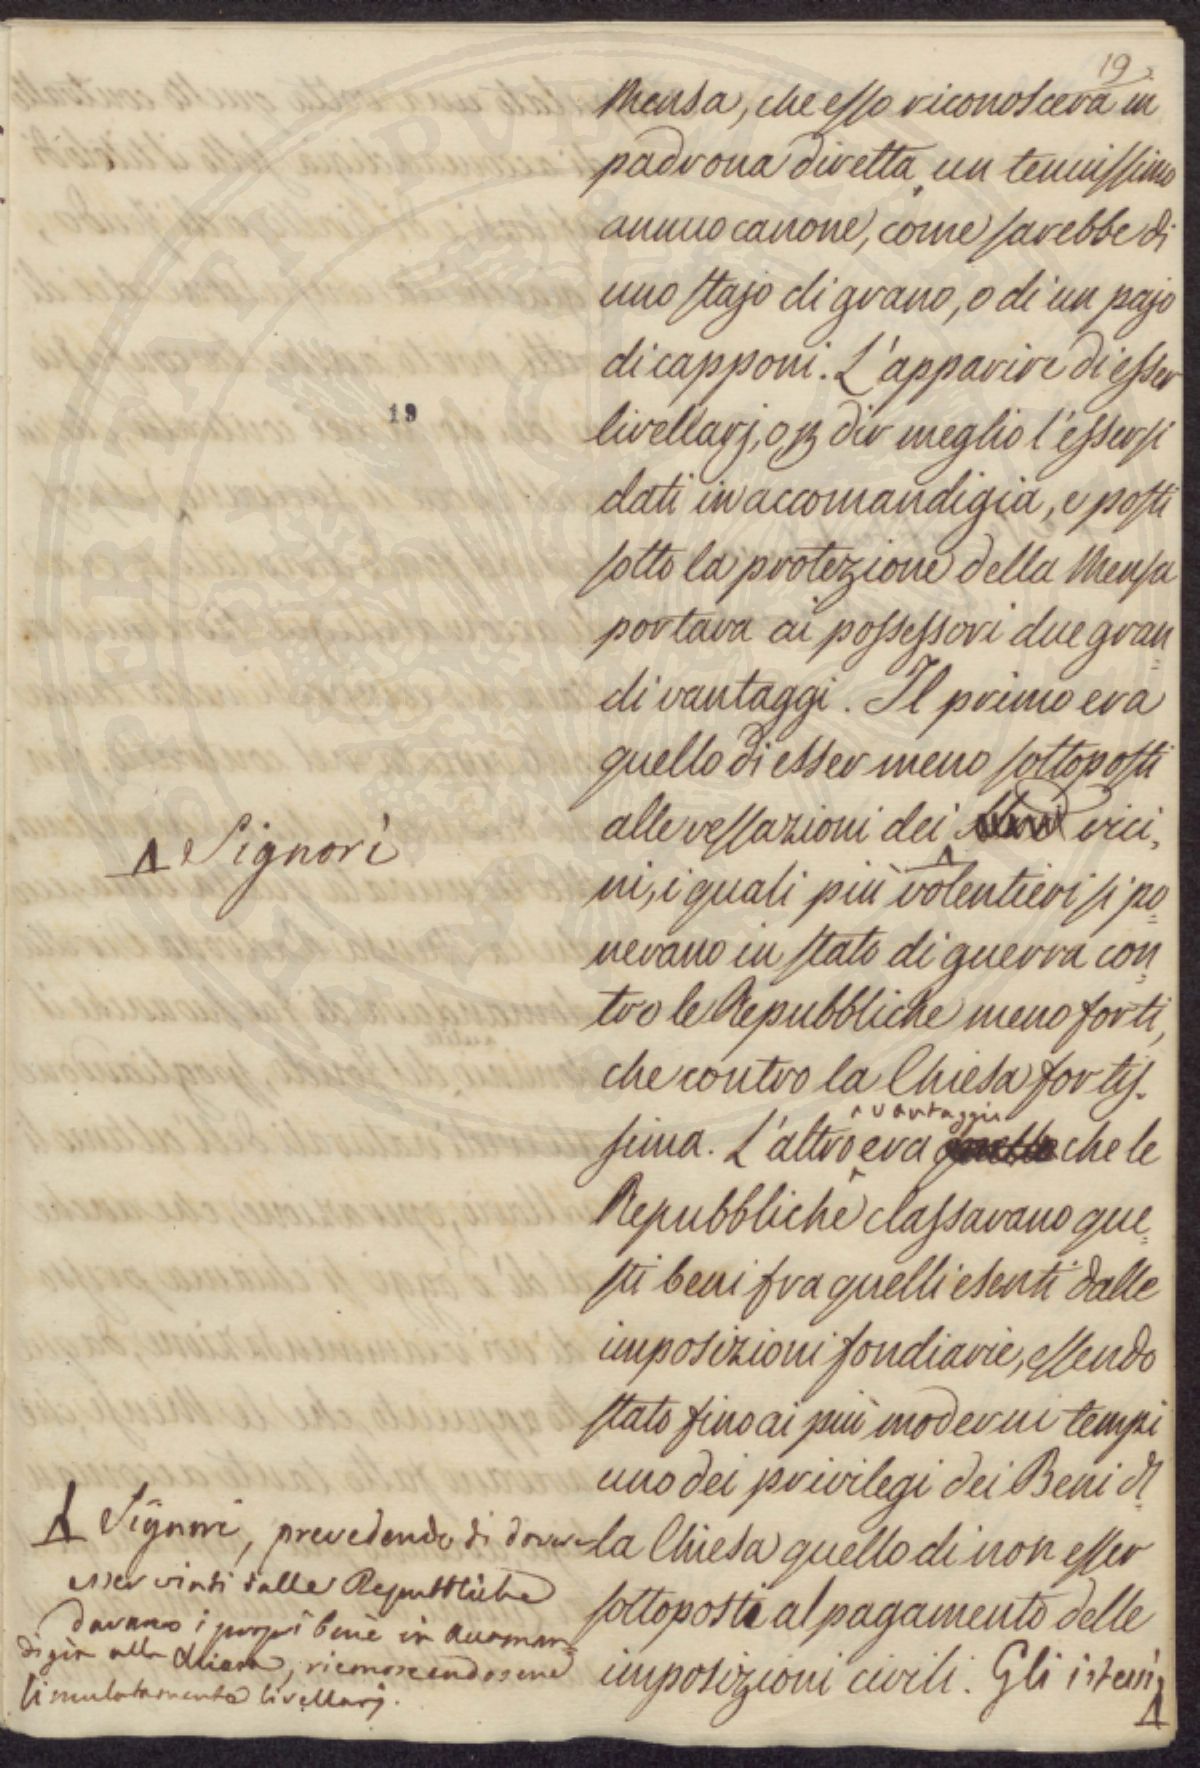 19
Mensa, che esso riconosceva in
padrona diretta un tenuissimo
annuo canone, come sarebbe di
uno stajo di grano, o di un pajo
di capponi. L'apparire di esser
19
livellarj, o p dir meglio l'essersi
dati in accomandigia, e posti
sotto la protezione della Mensa
portava ai possessori due gran=
di vantaggi. Il primo era
quello di esser meno sottoposti
alle vessazioni dei vici=
Signori
ni, i quali più volentieri si po=
nevano in stato di guerra con=
tro le Repubbliche meno forti,
che contro la Chiesa fortis=
vantaggio
sima. L'altro era che le
Repubbliche classavano que=
sti beni fra quelli esenti dalle
imposizioni fondiarie, essendo
stato fino ai più moderni tempi
uno dei privilegi dei Beni dl=
la Chiesa quello di non esser
sottoposti al pagamento delle
imposizioni civili. Gli istessi
Signori, prevedendo di dover
esser vinti dalle Repubbliche
davano i propri beni in accoman=
digia alla Chiesa, riconoscendosene
simulatamente livellarj.